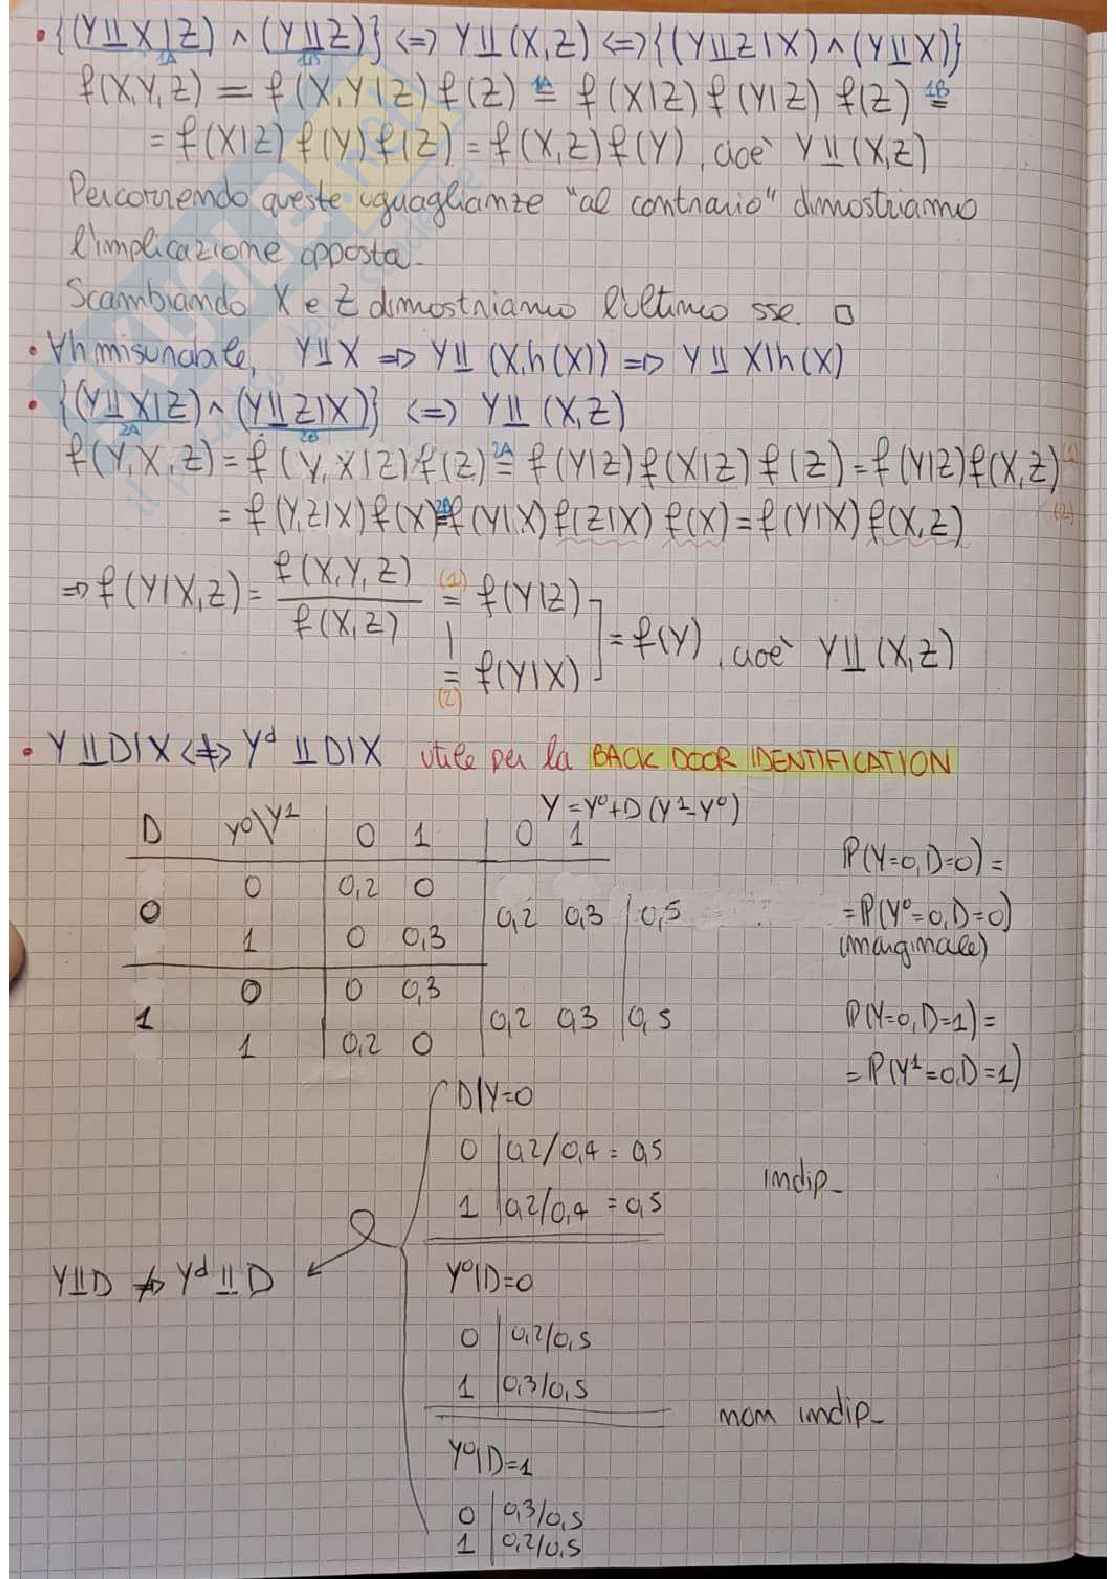 • {(Y⫫X|Z) ∧ (Y⫫Z)} <=> Y⫫(X,Z) <=> {(Y⫫Z|X) ∧ (Y⫫X)}
1A 1B
f(X,Y,Z) = f(X,Y|Z) f(Z) =1A f(X|Z) f(Y|Z) f(Z) =1B
= f(X|Z) f(Y) f(Z) = f(X,Z) f(Y), cioè Y⫫(X,Z)
Percorrendo queste uguaglianze "al contrario" dimostriamo
l'implicazione opposta.
Scambiando X e Z dimostriamo l'ultimo sse. □
• ∀h misurabile, Y⫫X => Y⫫(X,h(X)) => Y⫫X|h(X)
• {(Y⫫X|Z) ∧ (Y⫫Z|X)} <=> Y⫫(X,Z)
2A 2B
f(Y,X,Z) = f(Y,X|Z) f(Z) =2A f(Y|Z) f(X|Z) f(Z) = f(Y|Z) f(X,Z) (1)
= f(Y,Z|X) f(X) =2B f(Y|X) f(Z|X) f(X) = f(Y|X) f(X,Z) (2)
=> f(Y|X,Z) = f(X,Y,Z) / f(X,Z) =(1) f(Y|Z)
=(2) f(Y|X) ] = f(Y), cioè Y⫫(X,Z)
• Y⫫D|X <≠> Yᵈ⫫D|X utile per la BACK DOOR IDENTIFICATION
Y = Y⁰+D(Y¹-Y⁰)
D Y⁰\Y¹ 0 1 0 1
0 0 0,2 0 0,2 0,3 0,5
1 0 0,3
1 0 0 0,3 0,2 0,3 0,5
1 0,2 0
P(Y=0,D=0) =
= P(Y⁰=0,D=0)
(marginale)
P(Y=0,D=1) =
= P(Y¹=0,D=1)
D|Y=0
0 0,2/0,4 = 0,5
1 0,2/0,4 = 0,5
indip.
Y⫫D ≠> Yᵈ⫫D
Y⁰|D=0
0 0,2/0,5
1 0,3/0,5
non indip.
Y⁰|D=1
0 0,3/0,5
1 0,2/0,5